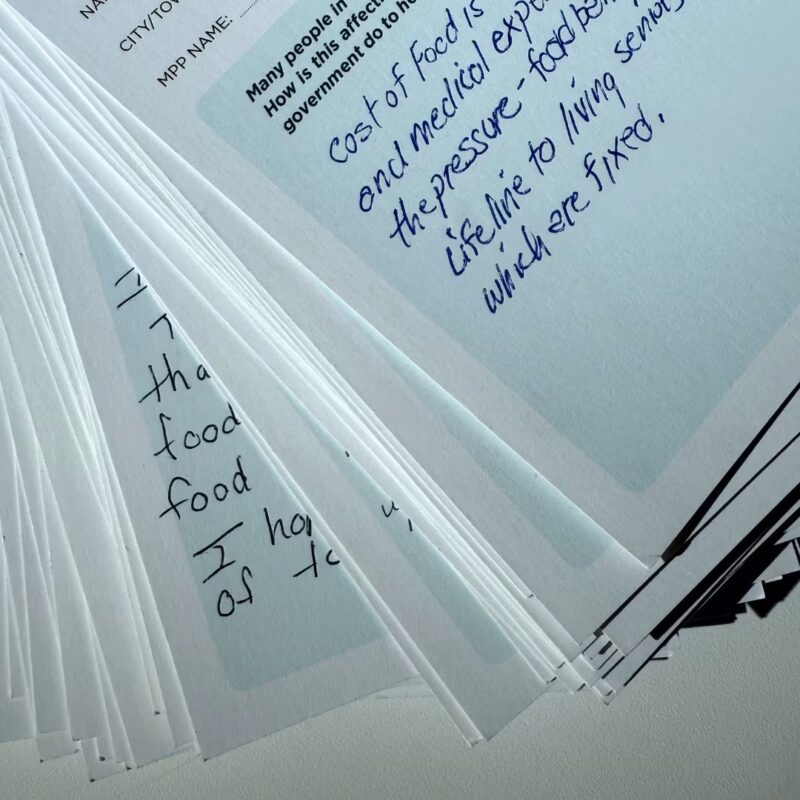 NA
CITY/TOW
MPP NAME:
Many people in
How is this affecti
government do to he
Cost of Food is
and medical expe
the pressure - food ban
Lifeline to living seniors
which are fixed.
I
tha
food
food
I ho
of to